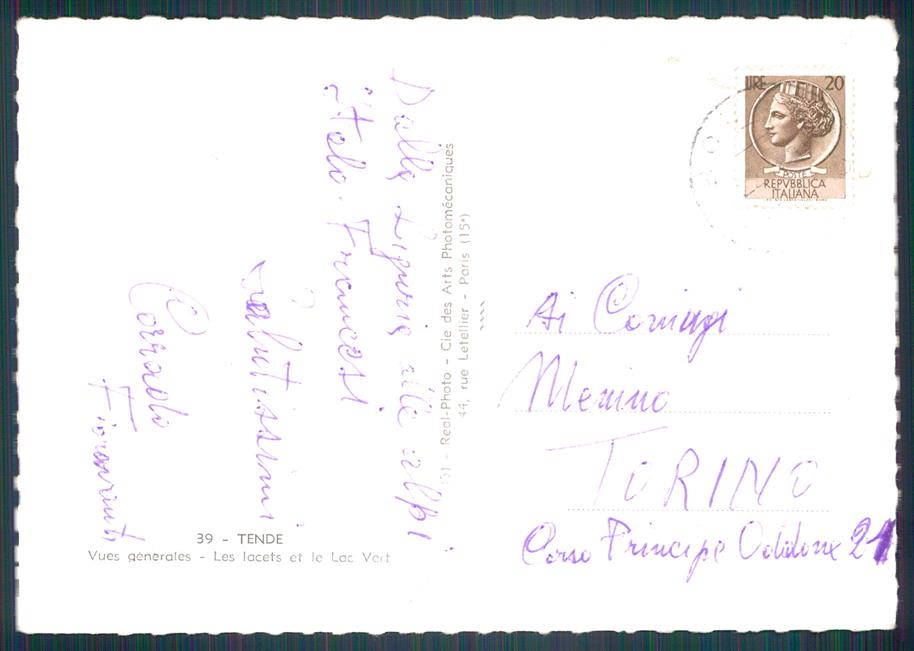 Dalla Liguria alle alpi
italo-Francesi
Salutissimi
Corrado
39 - TENDE
Vues générales - Les lacets et le Lac Vert
Real-Photo - Cie des Arts Photomécaniques
44, rue Letellier - Paris (15e)
LIRE 20
POSTE
REPVBBLICA
ITALIANA
Ai Coniugi
Menino
TORINO
Corso Principe Oddone 21